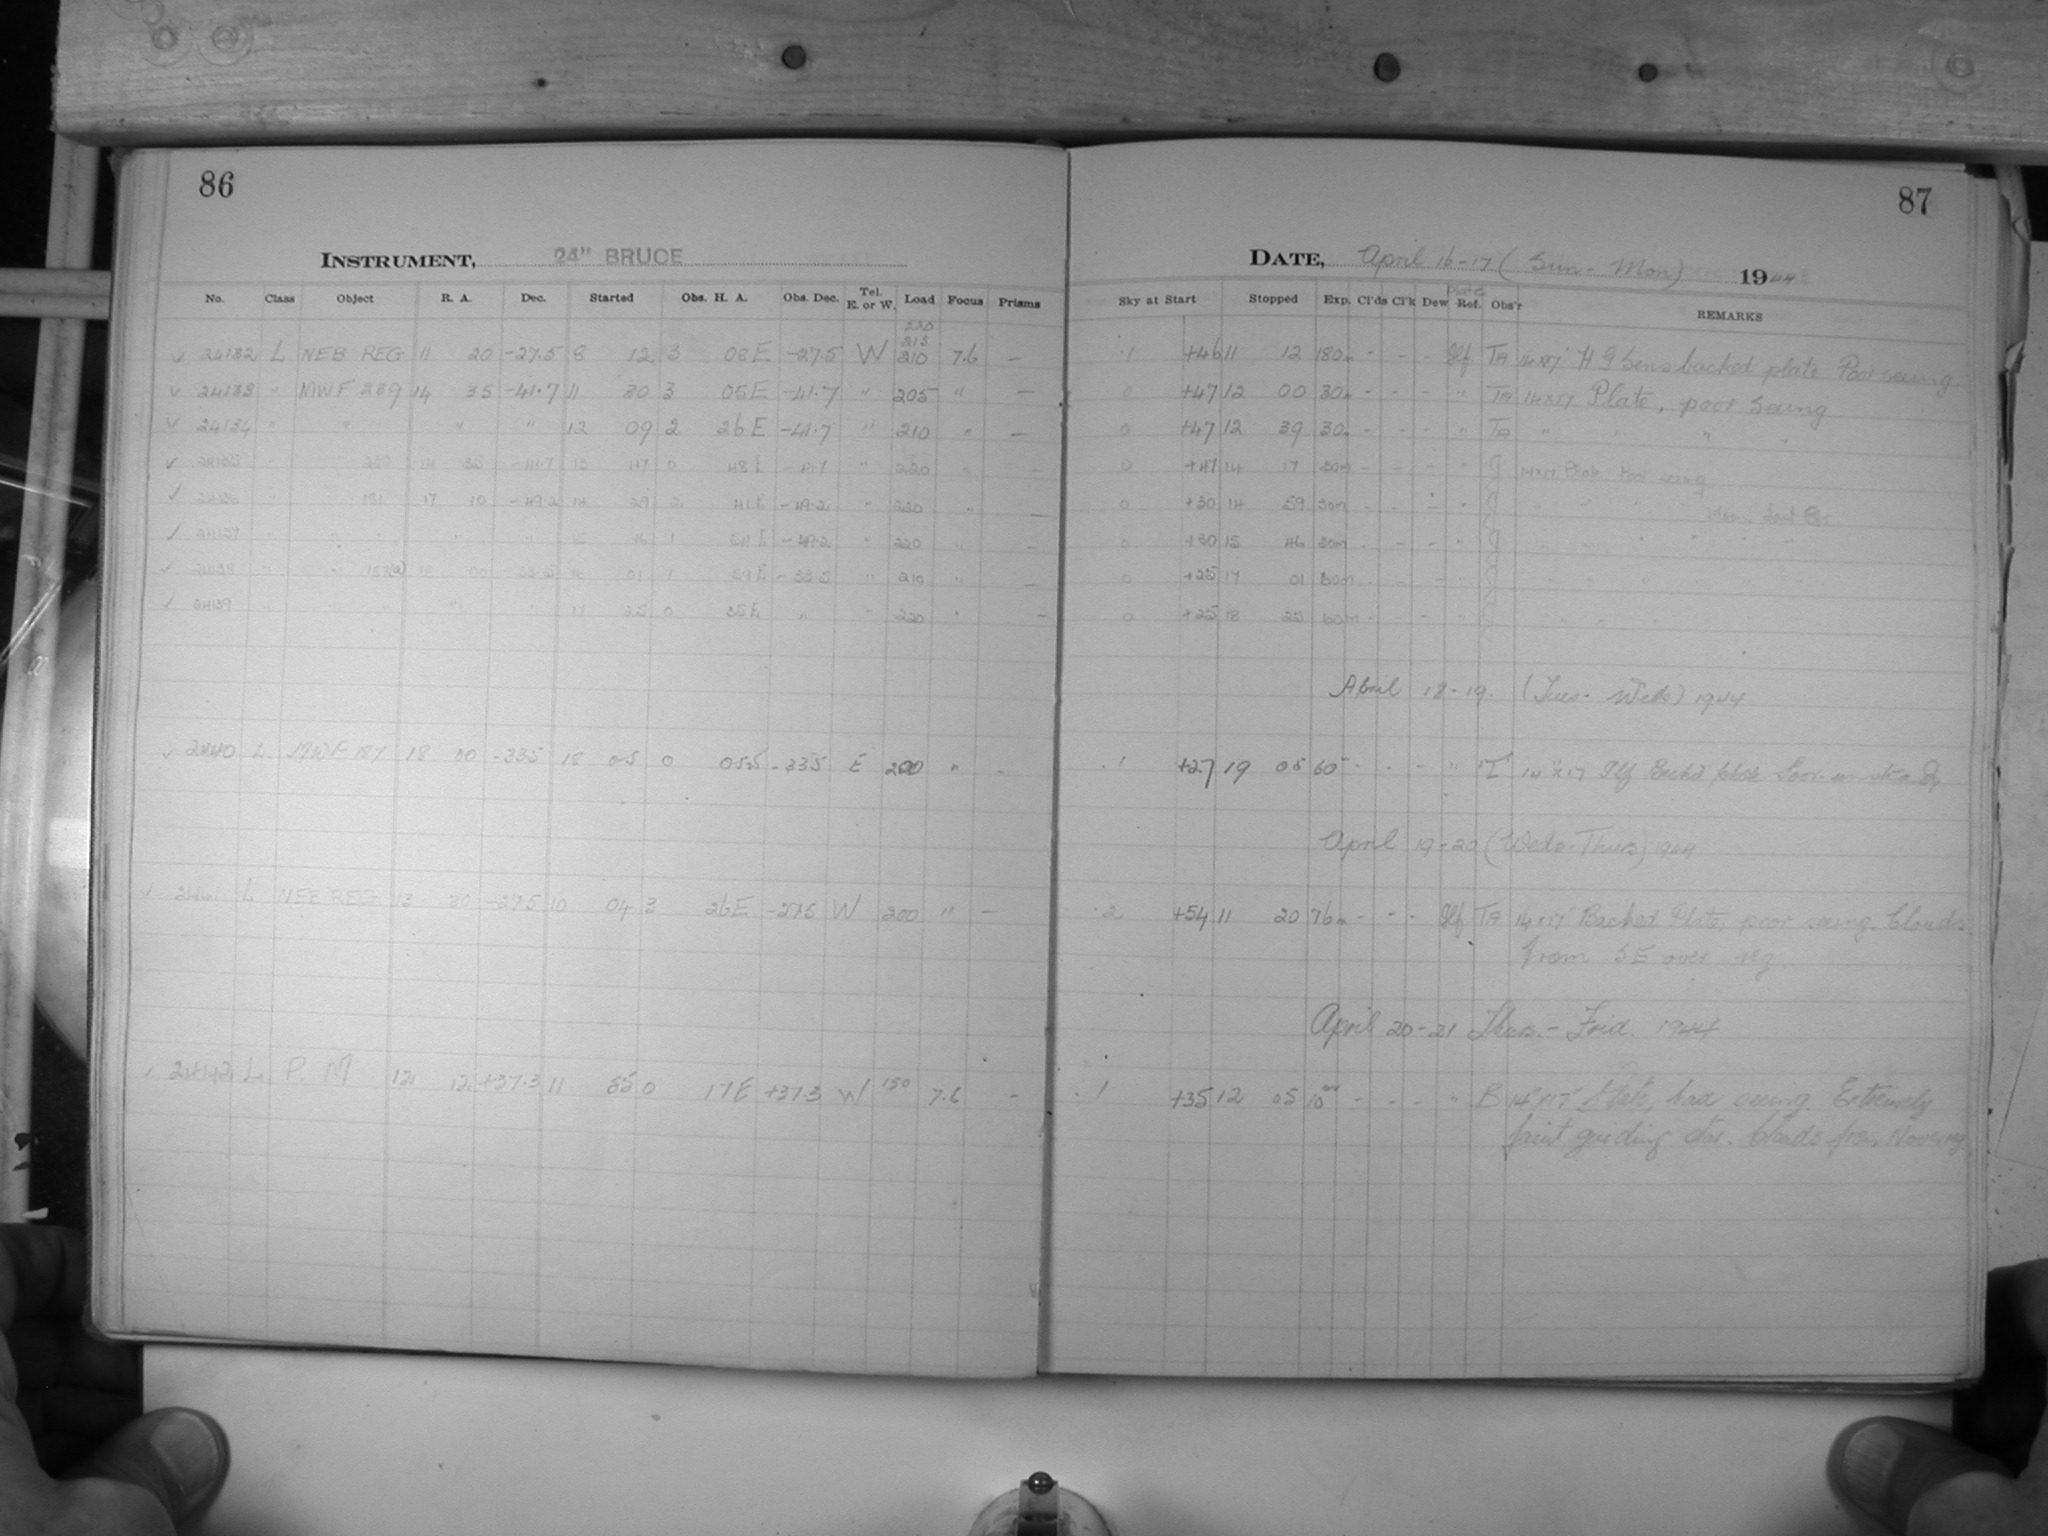 86
87
INSTRUMENT, 24" BRUCE
DATE, April 16-17 (Sun - Mon) 1944
No. Class Object R. A. Dec. Started Obs. H. A. Obs. Dec. Tel. E. or W. Load Focus Prisms
Sky at Start Stopped Exp. Cl'ds Cl'k Dew Plate Ref. Obs'r REMARKS
230
215
24132 L NEB REG 11 20 -27.5 8 12 3 08 E -27.5 W 210 7.6 — .1 +46 11 12 180m - - - TA 14x17 H G Sens backed plate Poor seeing
24133 " MWF 239 14 35 -41.7 11 30 3 05 E -41.7 " 205 " 0 +47 12 00 30m - - - " TA 14x17 Plate, poor seeing
24134 " " " " 12 09 2 26 E -41.7 " 210 " — 0 +47 12 39 30m - - - " TA " " " "
24135 " " 239 14 35 -41.7 13 47 0 48 E -41.7 " 220 " — 0 +47 14 17 30m - - - " 14x17 Plate Poor seeing
24136 " " 181 17 10 -49.2 14 29 2 41 E -49.2 " 220 " — 0 +30 14 59 30m - - - "
24137 " " " " " 15 16 1 54 E -49.2 " 220 " — 0 +30 15 46 30m - - - "
24138 " " 187(a) 18 00 -33.5 16 01 1 59 E -33.5 " 210 " — 0 +25 17 01 60m
24139 " " " " " 17 25 0 35 E " " 220 " — 0 +25 18 25 60m
April 18-19. (Tues- Weds) 1944
24140 L MWF 187 18 00 -33.5 18 05 0 05.5 -33.5 E 200 " - .1 +27 19 05 60 - - - " 14"x17
April 19-20 (Weds-Thurs) 1944
24141 L NEB REG 13 30 -27.5 10 04 3 26 E -27.5 W 200 " — .2 +54 11 20 76m - - - TA 14x17 Backed Plate, poor seeing. Clouds
from SE over reg.
April 20-21 Thurs.- Frid. 1944
24142 L P. M 12 12 +37.3 11 55 0 17 E +37.3 W 150 7.6 - .1 +35 12 05 10m - - - " B 14"x17" Plate, bad seeing. Extremely
faint guiding star. Clouds from